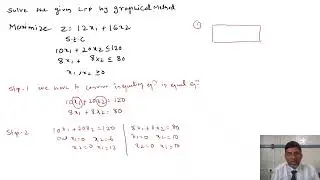 Solve the given LPP by graphical Method
Maximize Z = 12x1 + 16x2
S.t.c
10x1 + 20x2 ≤ 120
8x1 + 8x2 ≤ 80
x1, x2 ≥ 0
①
Step-1 we have to convert inequality eqn in equal eqn
10x1 + 20x2 = 120
8x1 + 8x2 = 80
Step-2
10x1 + 20x2 = 120
x1=0 x2=6
x2=0 x1=12
8x1 + 8x2 = 80
x1=0 x2=10
x2=0 x1=10